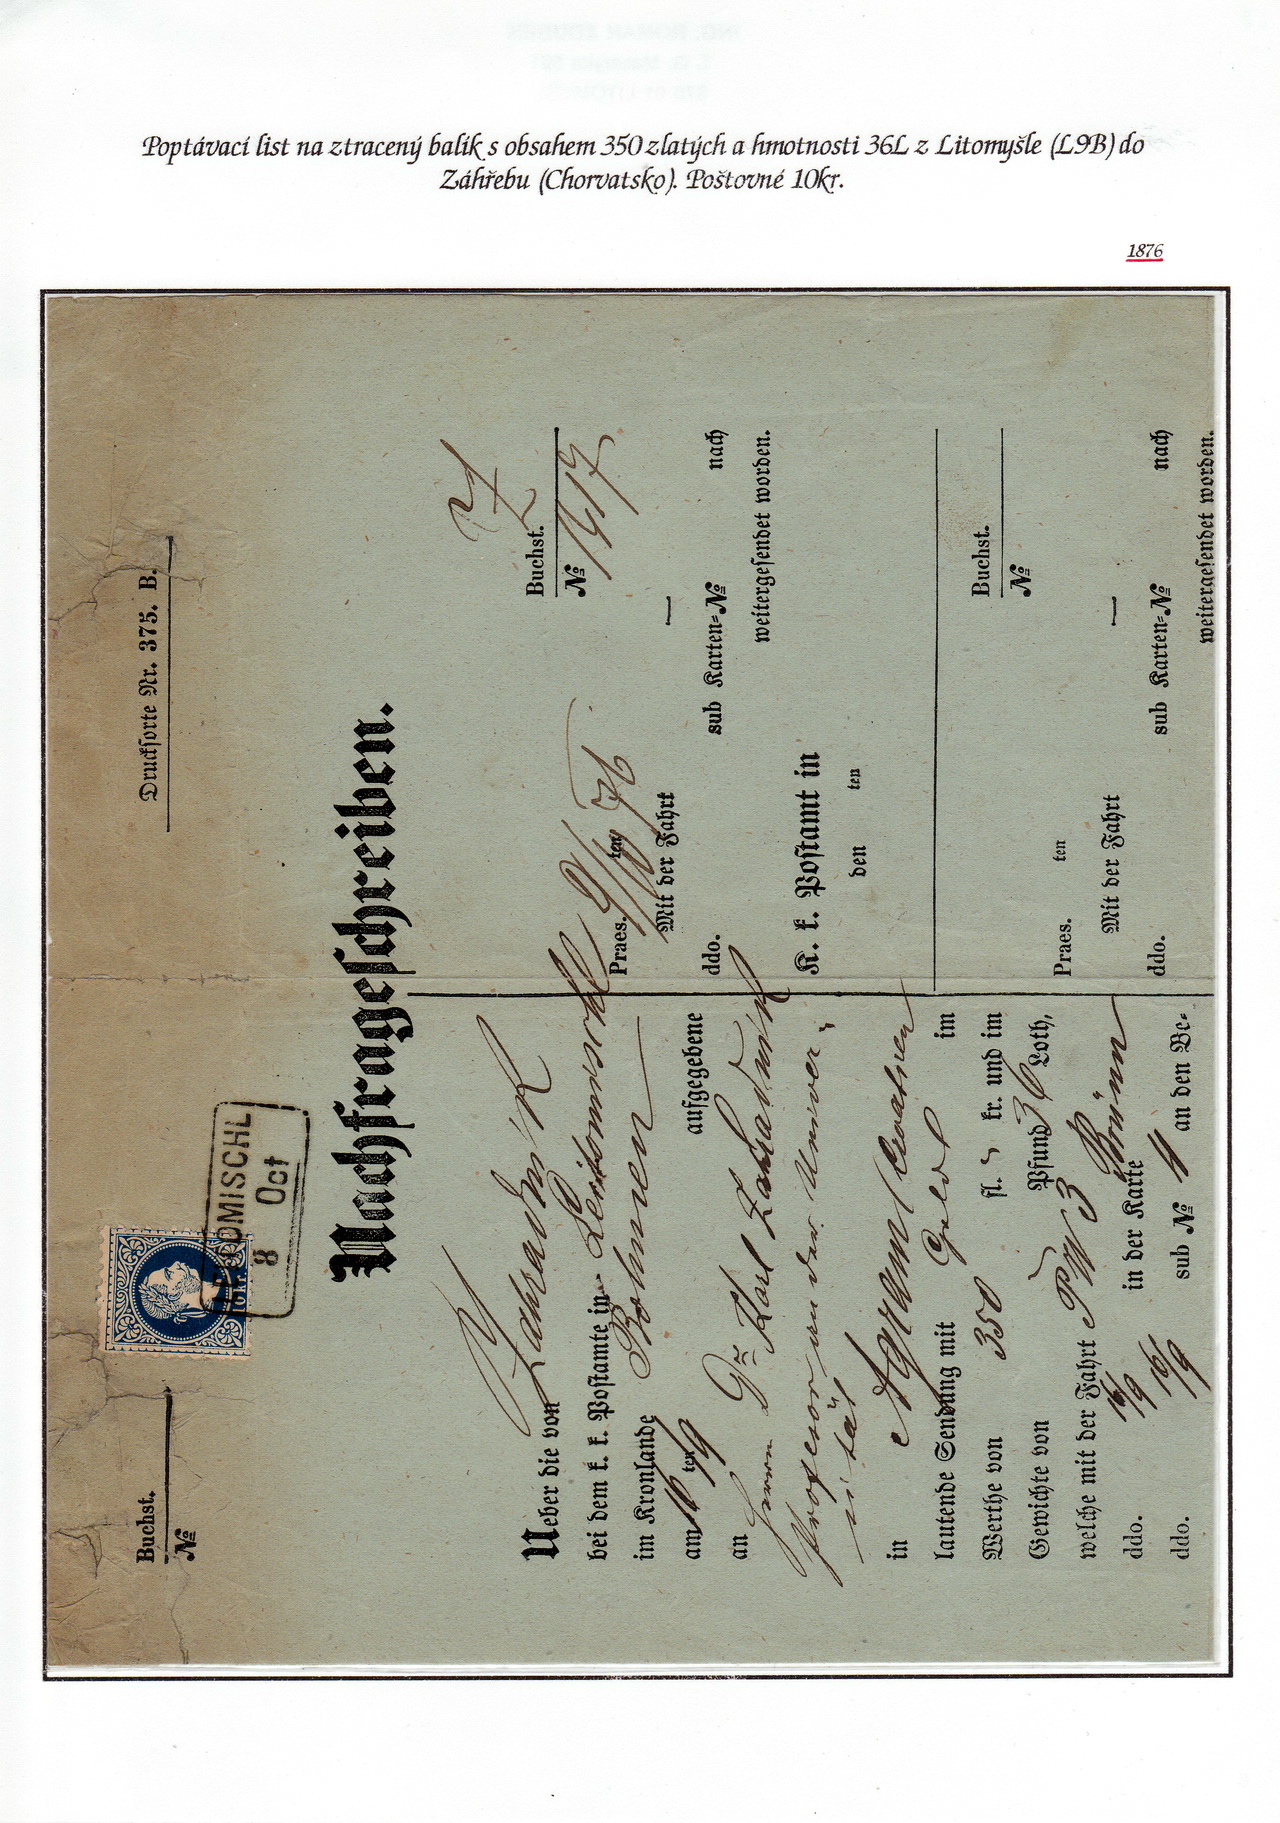 Poptávací list na ztracený balík s obsahem 350 zlatých a hmotnosti 36L z Litomyšle (L9B) do
Záhřebu (Chorvatsko). Poštovné 10kr.
1876
Buchst.
№
Drucksorte Nr. 375. B.
10 kr.
LEITOMISCHL
8 Oct
Nachfrageschreiben.
Ueber die von Zahradnik
bei dem k. k. Postamte in Leitomischl
im Kronlande Böhmen
am 16 ten/9 aufgegebene
an Herrn Dr Karl Zahradnik
Professor an der Univer-
sität
in Agram Croatien
lautende Sendung mit Geld im
Werthe von 350 fl. kr. und im
Gewichte von Pfund 36 Loth,
welche mit der Fahrt PW 3
ddo. 16/9 in der Karte Brünn
ddo. 16/9 sub № 1 an den Be-
Buchst.
№ 1917
Praes. 9/10 ten 76
Mit der Fahrt —
ddo. sub Karten-№ nach
weitergesendet worden.
K. k. Postamt in
den ten
Buchst.
№
Praes. ten
Mit der Fahrt —
ddo. sub Karten-№ nach
weitergesendet worden.